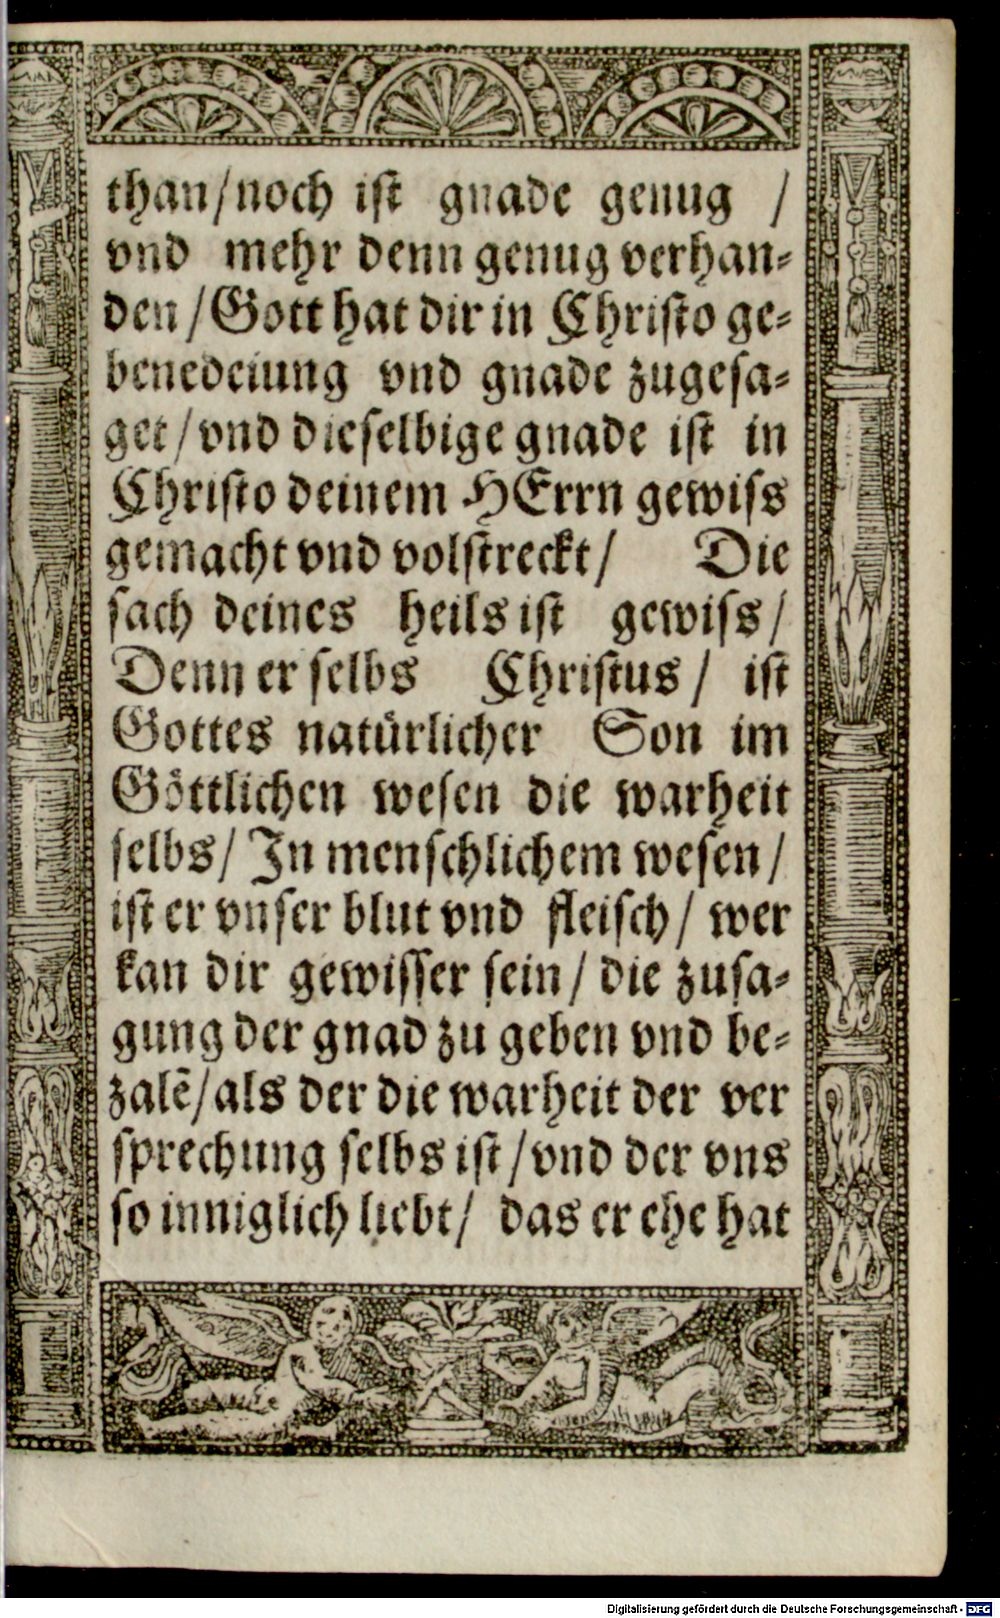 than/noch ist gnade genug /
vnd mehr denn genug verhan⸗
den/Gott hat dir in Christo ge⸗
benedeiung vnd gnade zugesa⸗
get/vnd dieselbige gnade ist in
Christo deinem HErrn gewiss
gemacht vnd volstreckt/ Die
sach deines heils ist gewiss/
Denn er selbs Christus/ ist
Gottes natürlicher Son im
Göttlichen wesen die warheit
selbs/ In menschlichem wesen/
ist er vnser blut vnd fleisch/ wer
kan dir gewisser sein/ die zusa⸗
gung der gnad zu geben vnd be⸗
zalē/als der die warheit der ver
sprechung selbs ist/vnd der vns
so inniglich liebt/ das er ehe hat
Digitalisierung gefördert durch die Deutsche Forschungsgemeinschaft - DFG